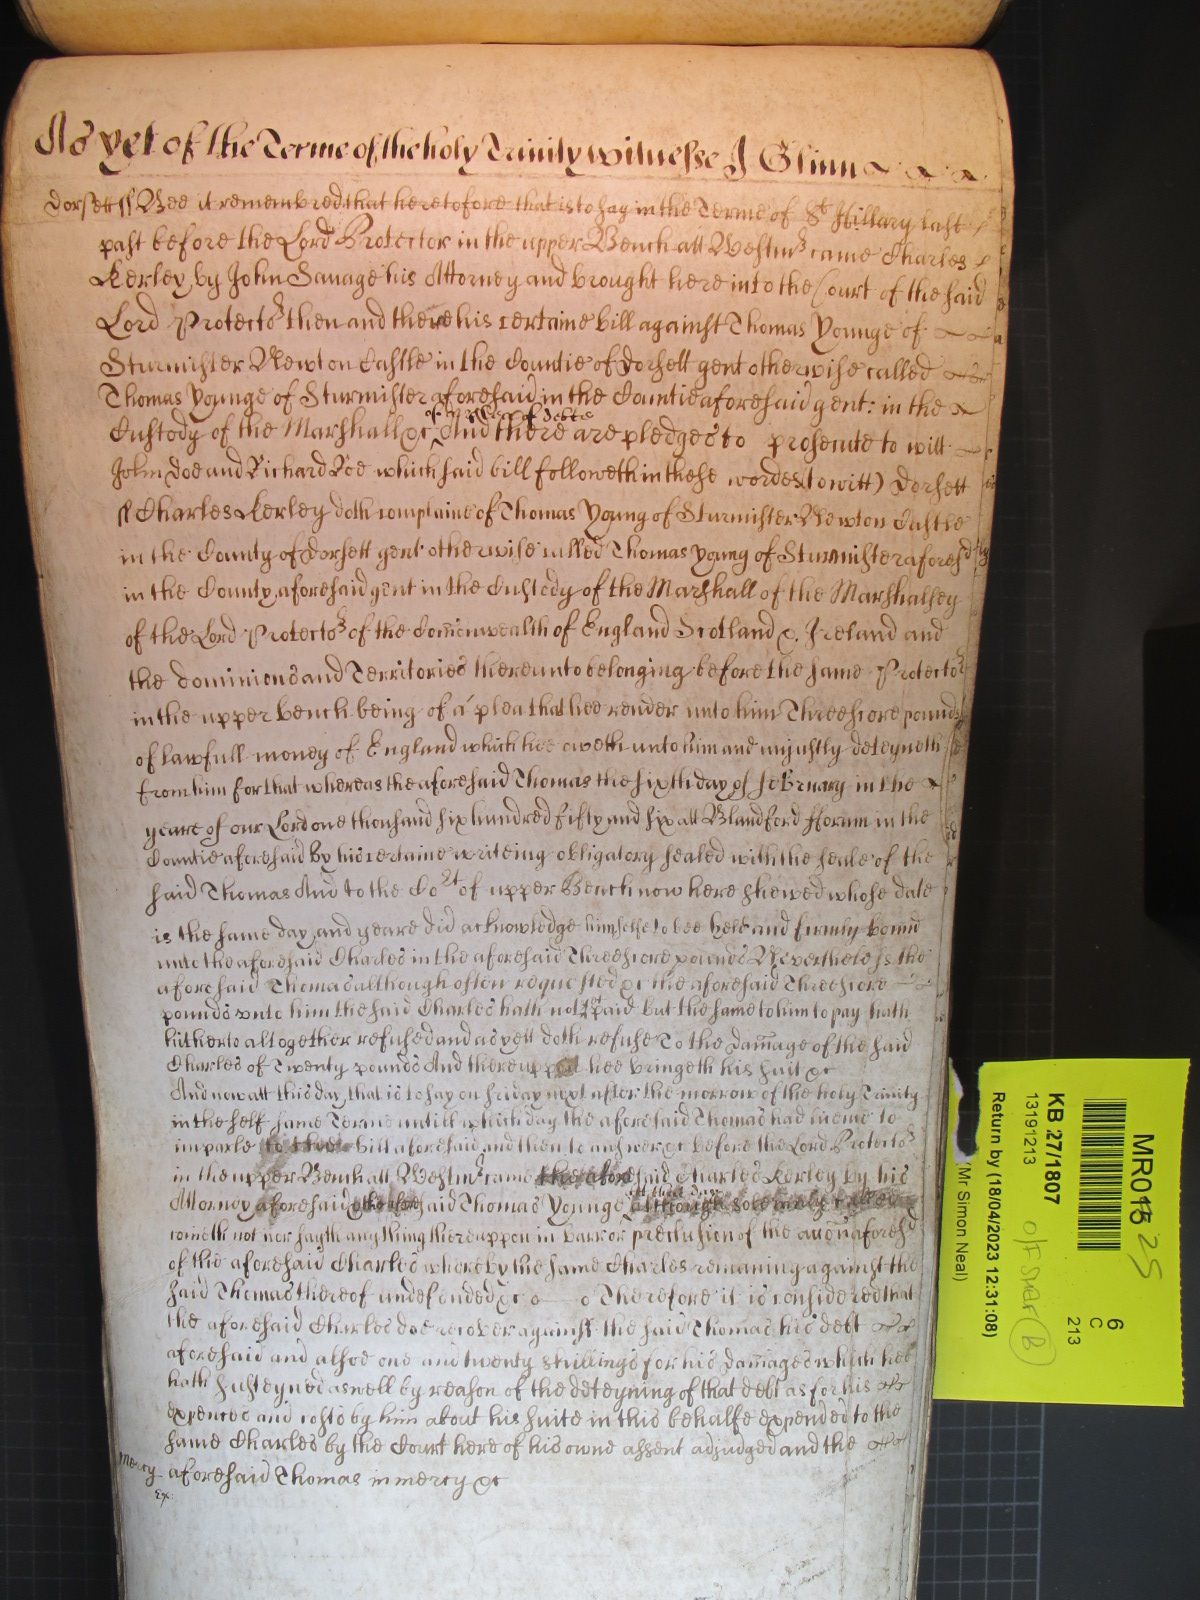 As yet of the Terme of the holy Trinity witnesse J Glinn
Dorsett ss Bee it remembred that heretofore that is to say in the Terme of St Hillary last
past before the Lord Protector in the upper Bench att Westmr came Charles
Kerley by John Savage his Attorney and brought here into the Court of the said
Lord Protector then and there his certaine bill against Thomas Younge of
Sturmister Newton Castle in the Countie of Dorsett gent otherwise called
Thomas Younge of Sturmister aforesaid in the Countie aforesaid gent: in the
of a plea of debt
Custody of the Marshall &c And there are pledges to prosecute to witt
John Doe and Richard Roe which said bill followeth in these wordes (to witt) Dorsett
ss Charles Kerley doth complaine of Thomas Young of Sturmister Newton Castle
in the County of Dorsett gent otherwise called Thomas Young of Sturmister aforesd
in the County aforesaid gent in the Custody of the Marshall of the Marshalsey
of the Lord Protector of the Comonwealth of England Scotland & Ireland and
the dominions and Territories thereunto belonging before the same Protector
in the upper bench being of a plea that hee render unto him Threescore pounds
of lawfull money of England which hee oweth unto him and unjustly deteyneth
from him for that whereas the aforesaid Thomas the sixth day of February in the
yeare of our Lord one thousand six hundred fifty and six att Blandford fforum in the
Countie aforesaid by his certaine writeing obligatory sealed with the seale of the
said Thomas And to the Cort of upper Bench now here shewed whose date
is the same day and yeare did acknowledge himselfe to bee held and firmly bound
unto the aforesaid Charles in the aforesaid Threescore pounds Neverthelesse the
aforesaid Thomas although often requested &c the aforesaid Threescore
pounds unto him the said Charles hath not yet paid but the same to him to pay hath
hitherto altogether refused and as yett doth refuse To the damage of the said
Charles of Twenty pounds And thereuppon hee bringeth his suit &c
And now att this day that is to say on Friday next after the morrow of the holy Trinity
in the self same Terme untill which day the aforesaid Thomas had licence to
imparle to the bill aforesaid and then to answer &c before the Lord Protector
in the upper Bench att Westmr came the aforesaid Charles Kerley by his
Attorney aforesaid the aforesaid Thomas Younge although solemnely called
cometh not nor sayth any thing thereuppon in barr or preclusion of the accon aforesd
of the aforesaid Charles whereby the same Charles remaining against the
said Thomas thereof undefended &c Therefore it is considered that
the aforesaid Charles doe recover against the said Thomas his debt
aforesaid and alsoe one and twenty shillings for his damages which hee
hath susteyned aswell by reason of the deteyning of that debt as for his
expences and costs by him about his suite in this behalfe expended to the
same Charles by the Court here of his owne assent adjudged and the
mercy aforesaid Thomas in mercy &c
Ex:
MR01 25
6
C
213
KB 27/1807
13191213
Return by (18/04/2023 12:31:08)
(Mr Simon Neal)